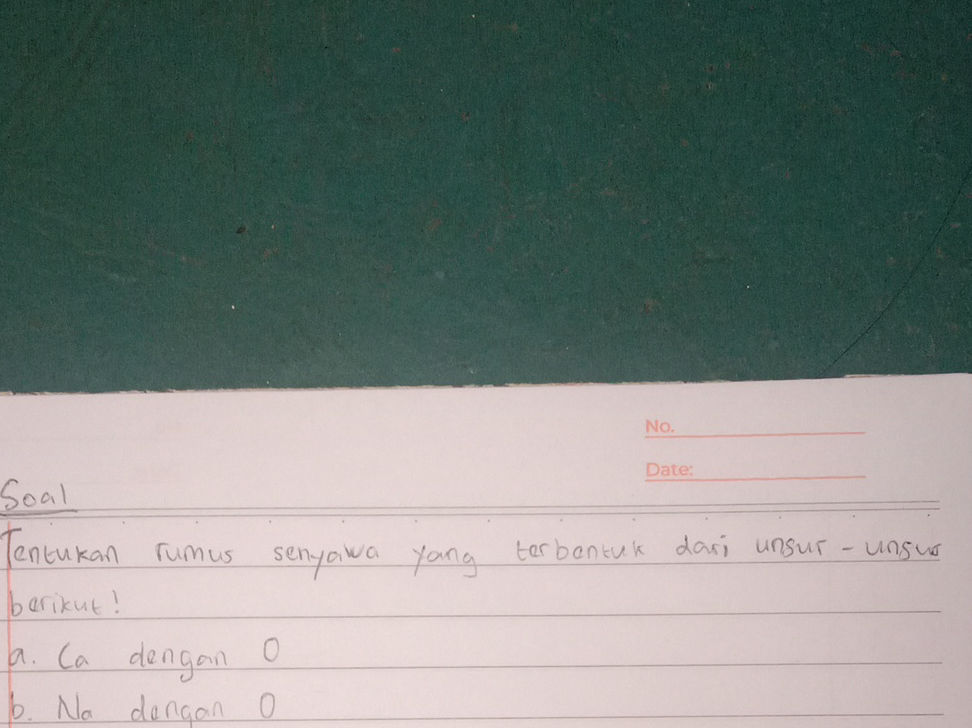 No.
Date:
Soal
Tentukan rumus senyawa yang terbentuk dari unsur - unsur
berikut!
a. Ca dengan O
b. Na dengan O